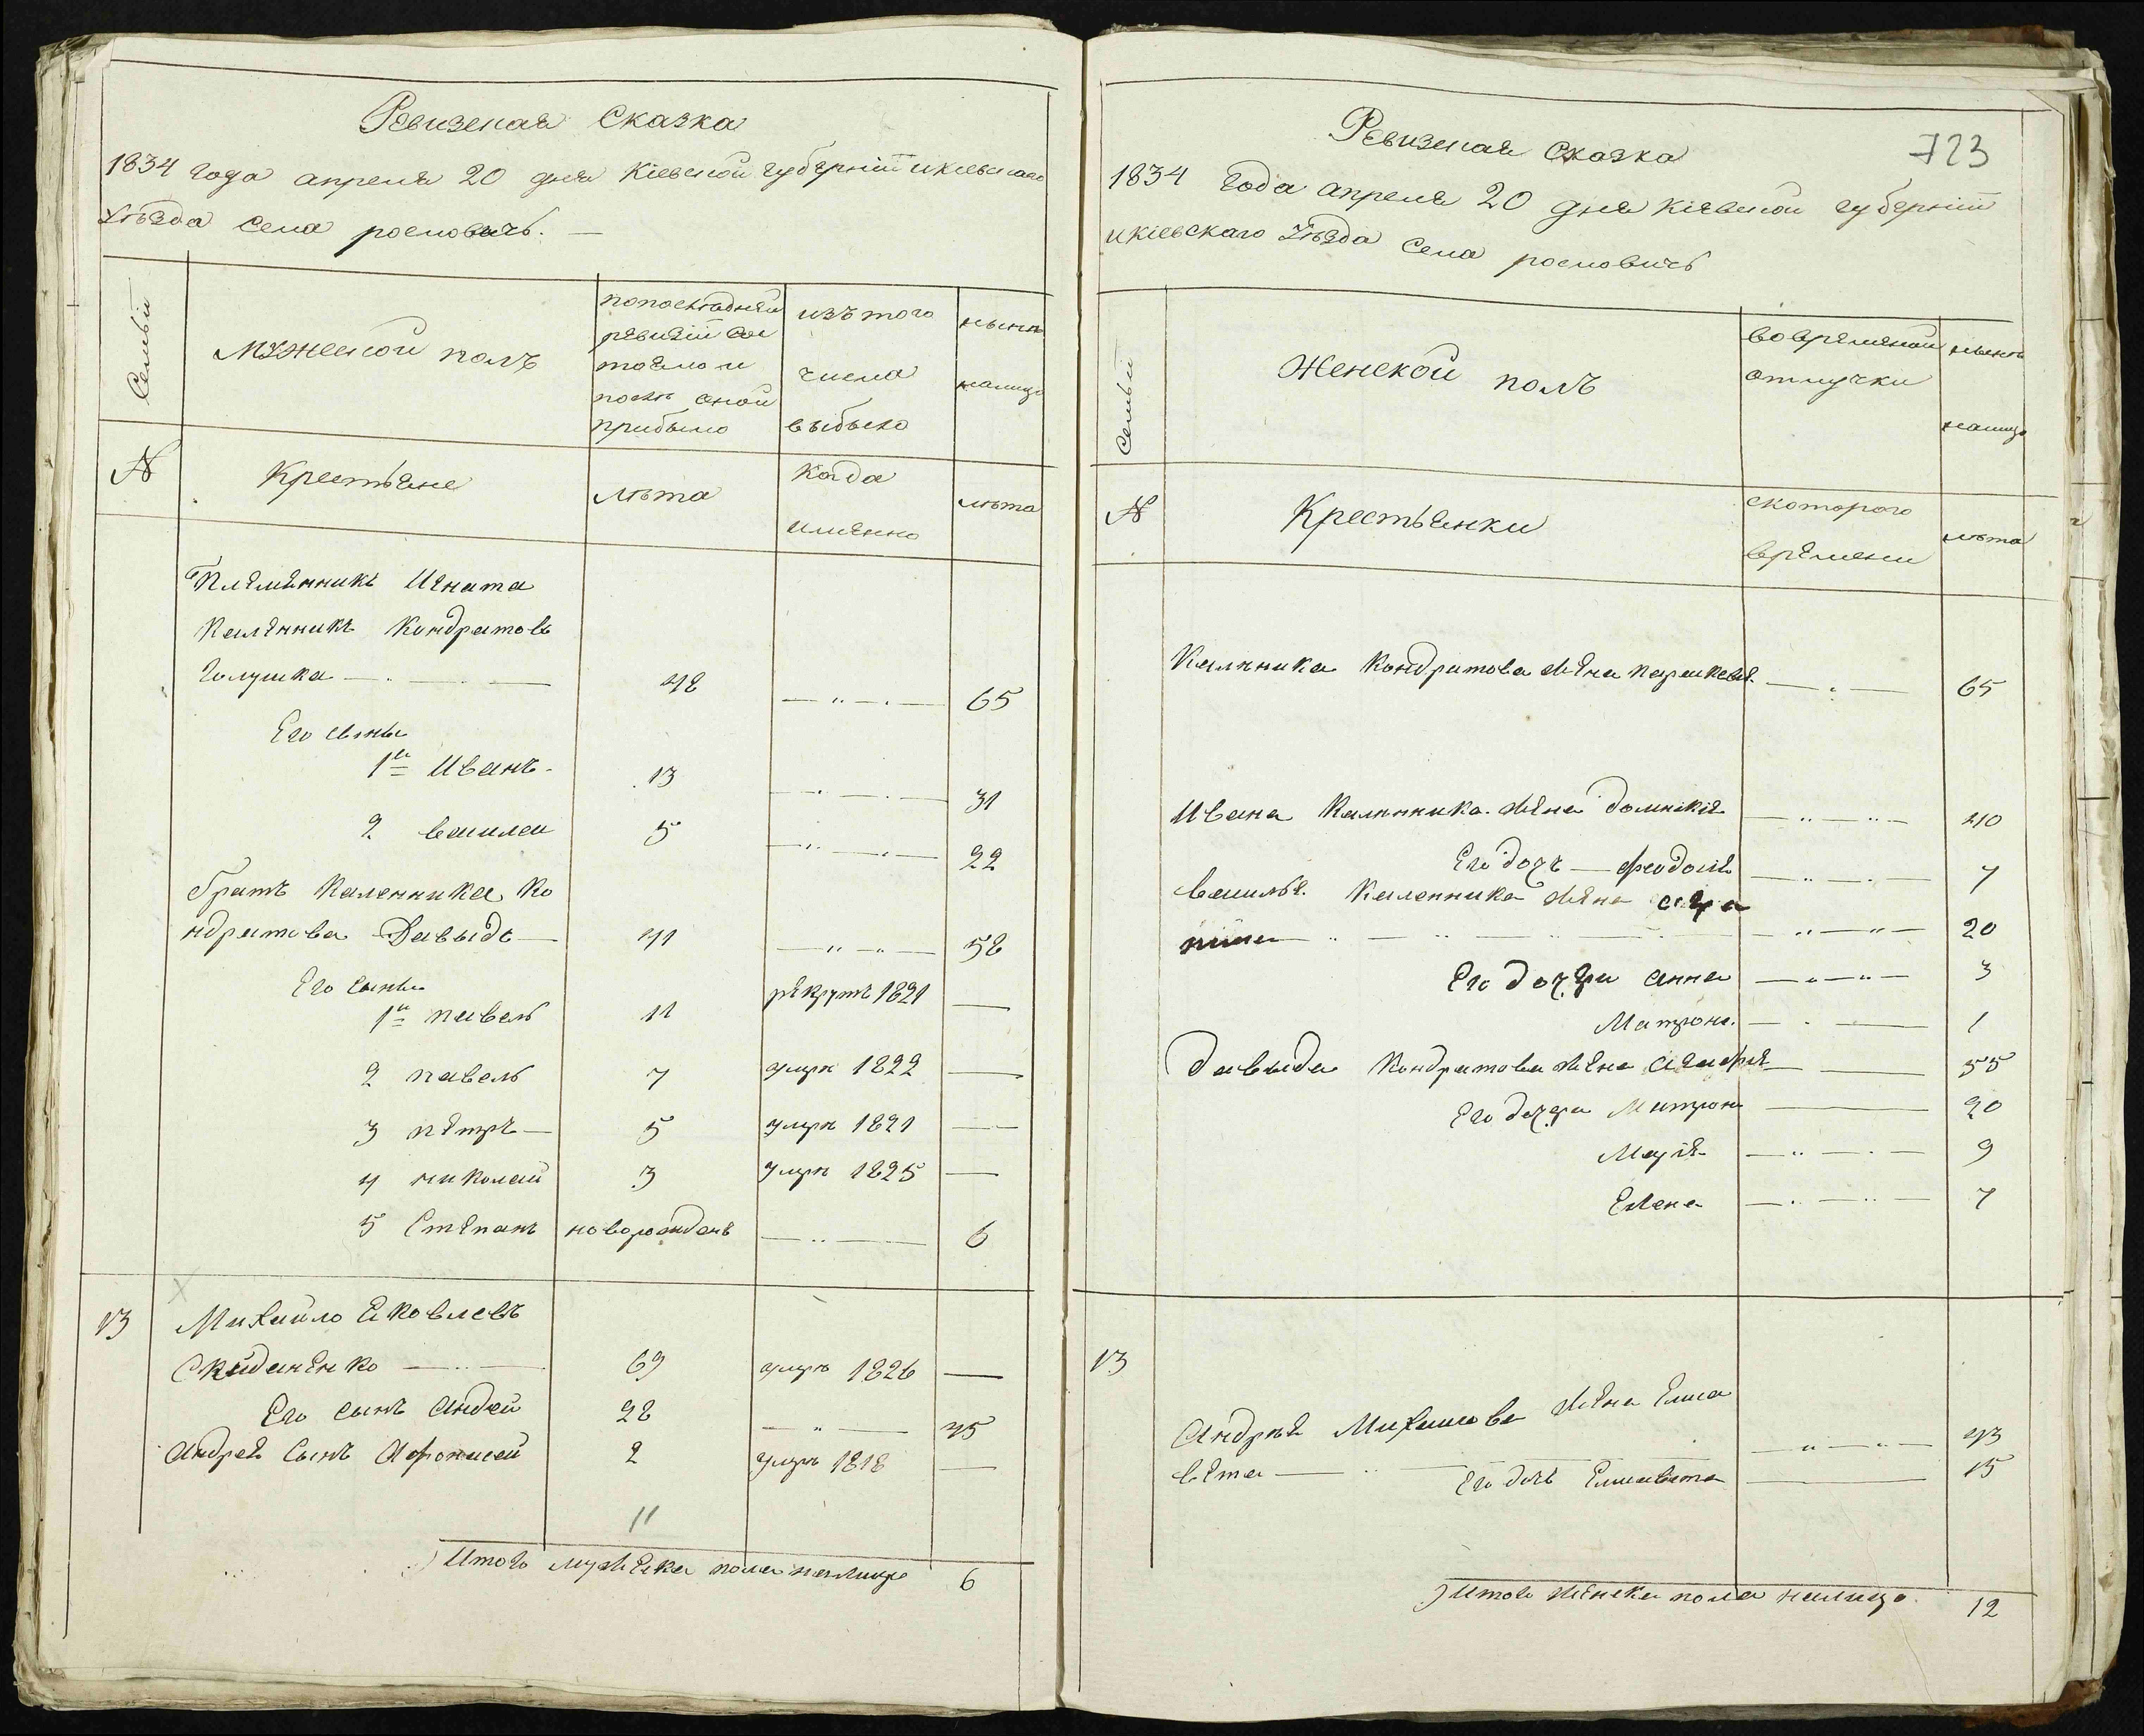 Ревизская Сказка
1834 года апреля 20 дня Кіевской губерніи и кіевскаго
Уѣзда Села росновичъ.
Семьи
Мужеской полъ
по послѣдней
ревизіи сос
тояло и
послѣ оной
прибыло
изъ того
числа
выбыло
нынѣ
налицо
№
Крестьяне
лѣта
Когда
имянно
лѣта
Племянникъ Игната
Калѣнникъ Кондратовъ
Галушка 48 65
Его сыны
1й Иванъ 13 31
2 василей 5 22
братъ Каленника Ко
ндратова Давыдъ 41 58
Его сыны
1й павелъ 11 рекрутъ 1821
2 павелъ 7 умре 1822
3 пётръ 5 умре 1821
4 николай 3 умре 1825
5 Степанъ новорожденъ 6
13 Михайло Яковлевъ
Скиданенко 69 умре 1826
Его сынъ Андрей 28 45
Андрея Сынъ Афонасей 2 умре 1818
11
Итого мужеска пола налицо 6
723
Ревизская Сказка
1834 Года апреля 20 дня кіевской губерніи
и кіевскаго Уѣзда Села росновичъ
Семьи
Женской полъ
во временной
отлучки
нынѣ
налицо
№
Крестьянки
с котораго
времени
лѣта
Калѣника Кондратова жена параскевія 65
Ивана Калѣнника жена домникія 40
Его дочь феодосія 7
василья Каленника жена
20
Его дочери анна 3
Матрона 1
давыда Кондратова жена 55
Его дочери Матрона 20
Марія 9
Елена 7
13
Андрея Михайлова жена Елиса
вета 43
Его дочь Елисавета 15
Итого женска пола налицо 12